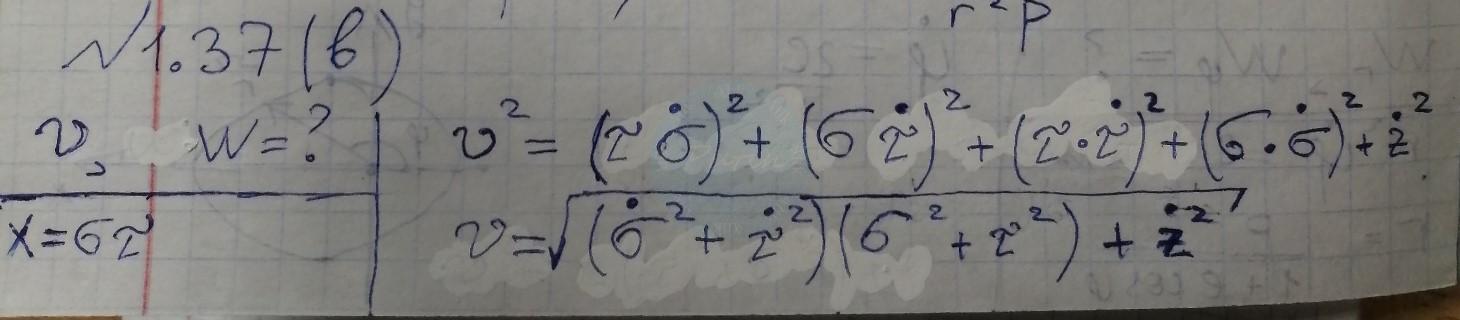 r²p
№1.37(в)
v, W=?
x=στ
v² = (τσ̇)² + (στ̇)² + (τ·τ̇)² + (σ·σ̇)² + ż²
v=√(σ̇² + τ̇²)(σ² + τ²) + ż²